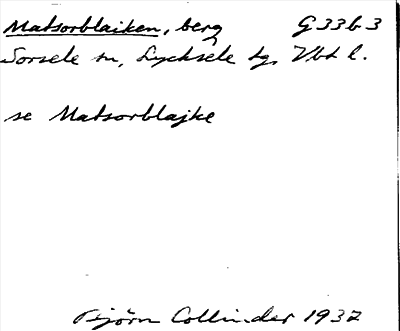 Matsorblaiken, berg G 33 b 3
Sorsele sn, Lycksele tg, Vbt l.
se Matsorblajke
Björn Collinder 1937